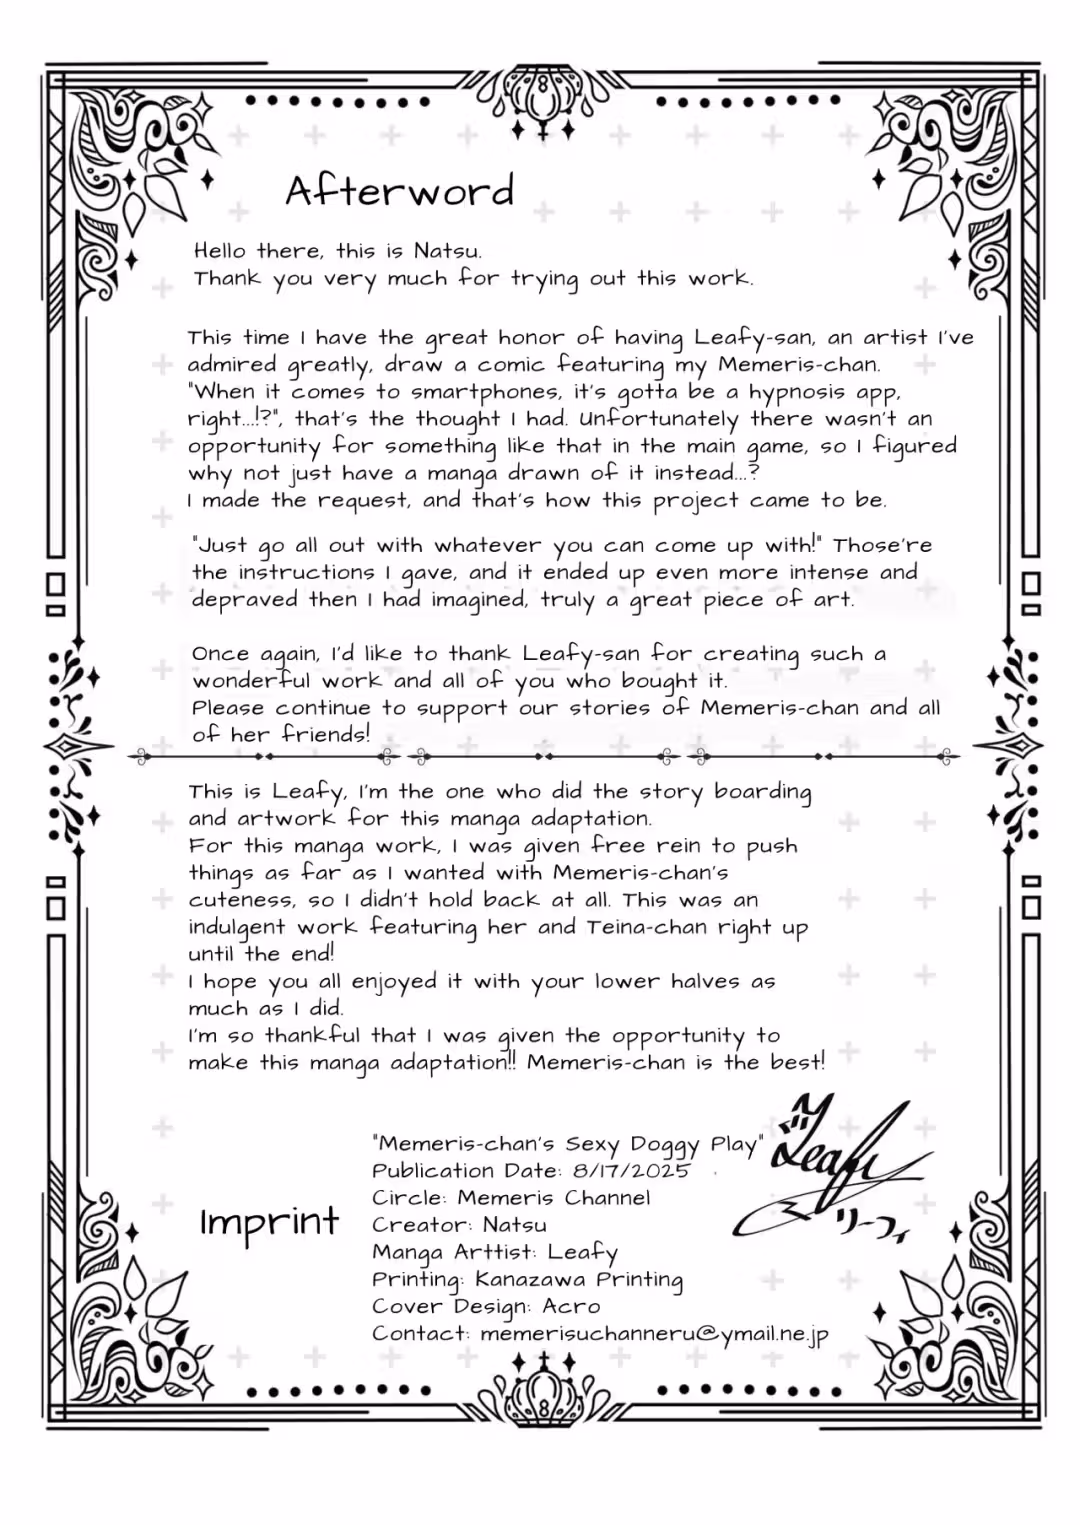 Afterword
Hello there, this is Natsu.
Thank you very much for trying out this work.
This time I have the great honor of having Leafy-san, an artist I've
admired greatly, draw a comic featuring my Memeris-chan.
"When it comes to smartphones, it's gotta be a hypnosis app,
right...!?", that's the thought I had. Unfortunately there wasn't an
opportunity for something like that in the main game, so I figured
why not just have a manga drawn of it instead...?
I made the request, and that's how this project came to be.
"Just go all out with whatever you can come up with!" Those're
the instructions I gave, and it ended up even more intense and
depraved then I had imagined, truly a great piece of art.
Once again, I'd like to thank Leafy-san for creating such a
wonderful work and all of you who bought it.
Please continue to support our stories of Memeris-chan and all
of her friends!
This is Leafy, I'm the one who did the story boarding
and artwork for this manga adaptation.
For this manga work, I was given free rein to push
things as far as I wanted with Memeris-chan's
cuteness, so I didn't hold back at all. This was an
indulgent work featuring her and Teina-chan right up
until the end!
I hope you all enjoyed it with your lower halves as
much as I did.
I'm so thankful that I was given the opportunity to
make this manga adaptation!! Memeris-chan is the best!
Imprint
"Memeris-chan's Sexy Doggy Play"
Publication Date: 8/17/2025
Circle: Memeris Channel
Creator: Natsu
Manga Arttist: Leafy
Printing: Kanazawa Printing
Cover Design: Acro
Contact: memerisuchanneru@ymail.ne.jp
Leafy
リーフィ
8
8